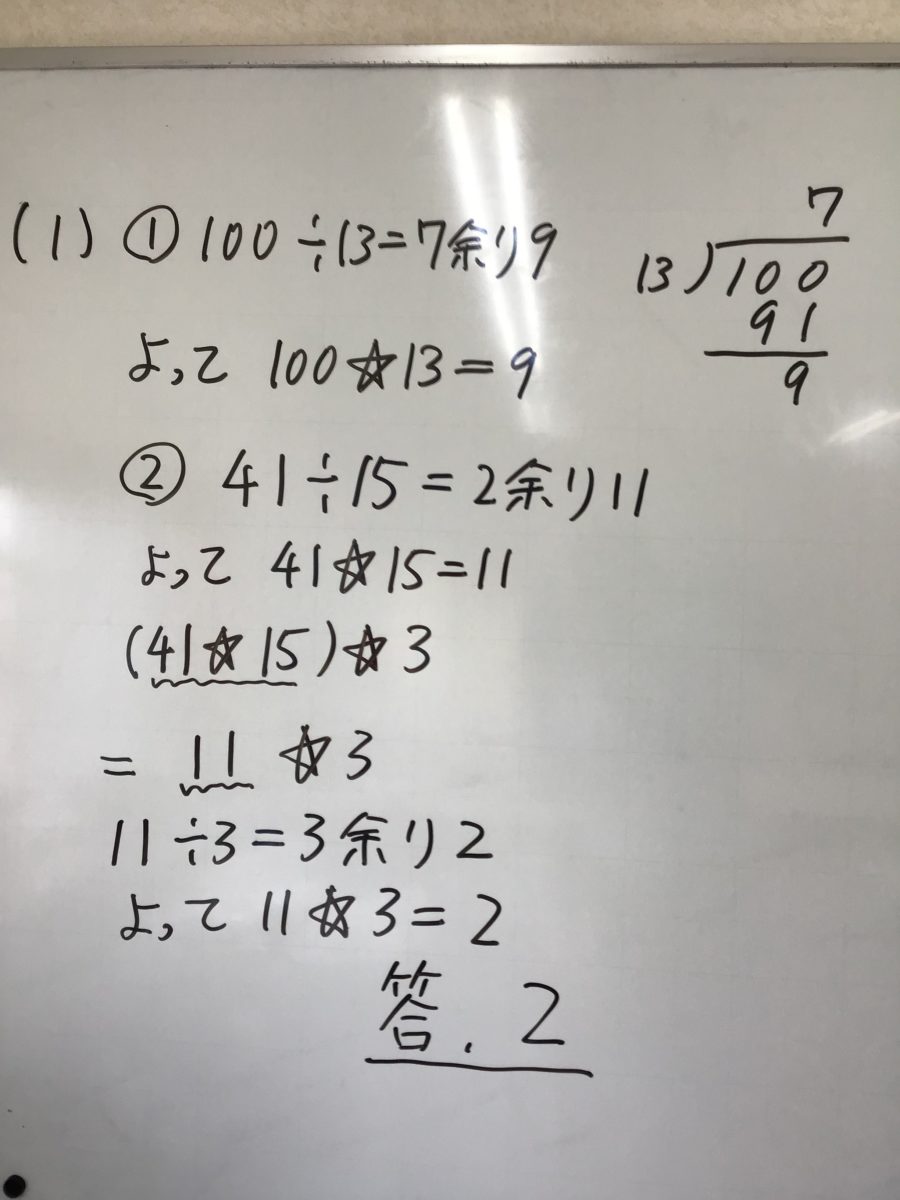 (1) ① 100÷13=7余り9
よって 100☆13=9
7
13)100
91
9
② 41÷15=2余り11
よって 41☆15=11
(41☆15)☆3
= 11☆3
11÷3=3余り2
よって 11☆3=2
答. 2